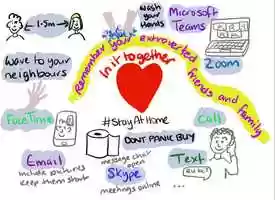 1.5m
Wash
your
Hands
Microsoft
Teams
Remember your extroverted friends and family
In it together
Zoom
Wave to your
neighbours
FaceTime
#StayAtHome
Call
DONT PANIC BUY
Email
include pictures
keep them short
message chat
open
Skype
meetings online
...
Text